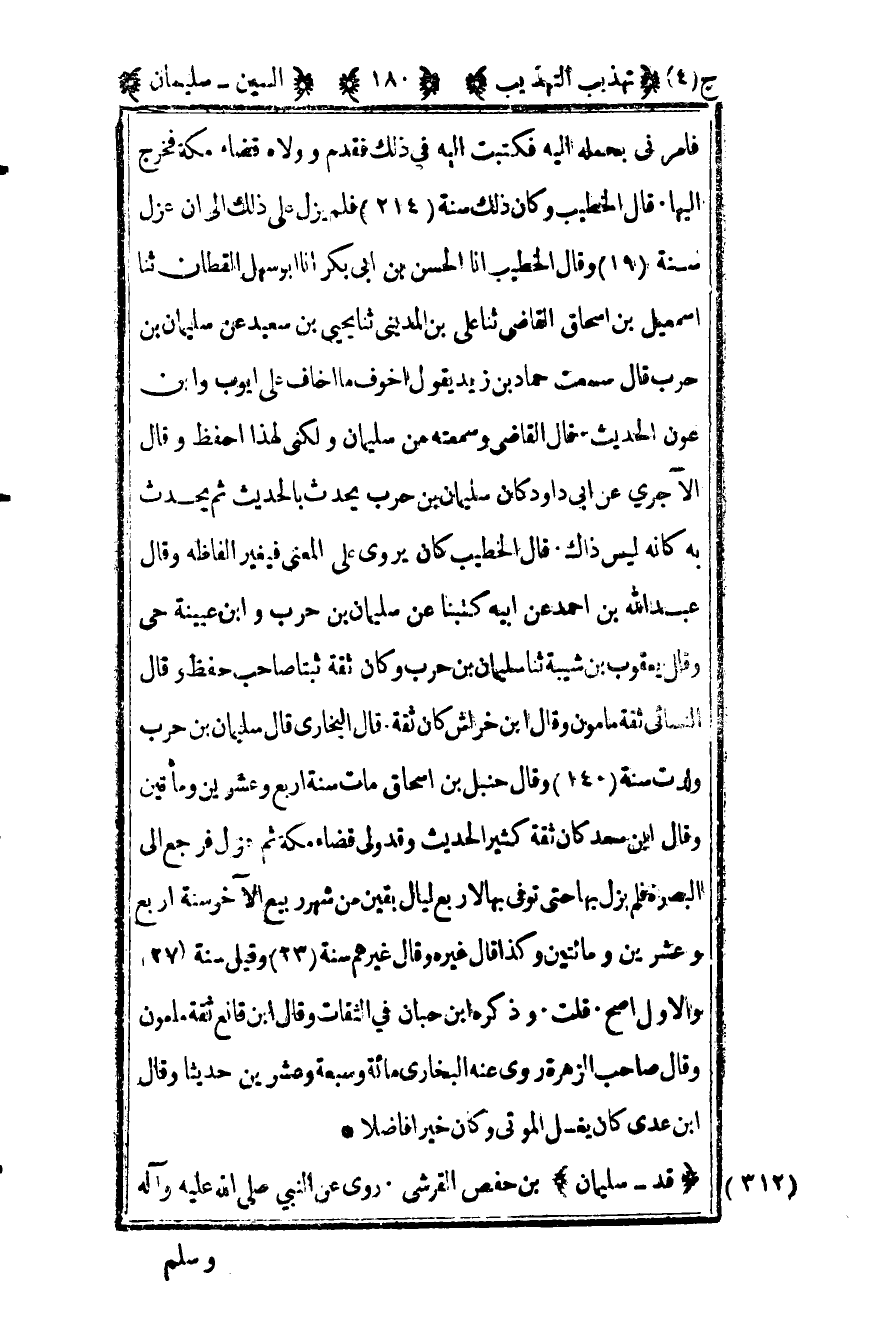 ج(٤) ﴿ تهذيب التهذيب ﴾ ﴿ ١٨٠ ﴾ ﴿ السين ـ سليمان ﴾
فامرنى بحمله اليه فكتبت اليه في ذلك فقدم وولاه قضاء مكة فخرج
اليها ٠ قال الخطيب وكان ذلك سنة (٢١٤) فلم يزل على ذلك الى ان عزل
سنة (١٩) وقال الخطيب انا الحسن بن ابى بكر انا ابو سهل القطان ثنا
اسمعيل بن اسحاق القاضى ثنا على بن المدينى ثنا يحيى بن سعيد عن سليمان بن
حرب قال سمعت حماد بن زيد يقول اخوف ما اخاف على ايوب وابن
عون الحديث ٠ قال القاضى وسمعته من سليمان ولكنى لهذا احفظ وقال
الآجري عن ابى داود كان سليمان بن حرب يحدث بالحديث ثم يحدث
به كانه ليس ذاك ٠ قال الخطيب كان يروى على المعنى فيغير الفاظه وقال
عبدالله بن احمد عن ابيه كتبنا عن سليمان بن حرب وابن عيينة حى
وقال يعقوب بن شيبة ثنا سليمان بن حرب وكان ثقة ثبتا صاحب حفظ وقال
النسائى ثقة مامون وقال ابن خراش كان ثقة ٠ قال البخارى قال سليمان بن حرب
ولدت سنة (١٤٠) وقال حنبل بن اسحاق مات سنة اربع وعشرين ومأتين
وقال ابن سعد كان ثقة كثير الحديث وقد ولى قضاء مكة ثم عزل فرجع الى
البصرة فلم يزل بها حتى توفى بها لاربع ليال بقين من شهر ربيع الآخر سنة اربع
وعشرين ومائتين وكذا قال غيره وقال غيرهم سنة (٢٣) وقيل سنة (٢٧)
والاول اصح ٠ قلت ٠ وذكره ابن حبان في الثقات وقال ابن قانع ثقة مامون
وقال صاحب الزهرة روى عنه البخارى مائة وسبعة وعشرين حديثا وقال
ابن عدى كان يغسل الموتى وكان خيرا فاضلا *
(٣١٢) ﴿ قد ـ سليمان ﴾ بن حفص القرشى ٠ روى عن النبي صلى الله عليه وآله
وسلم